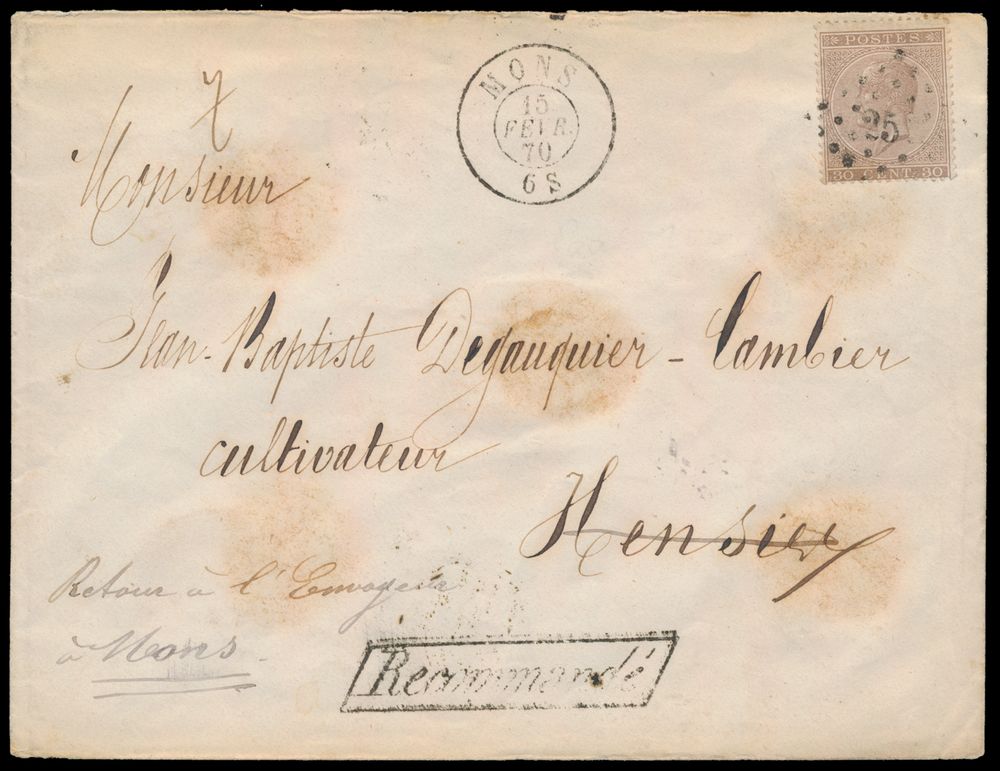 MONS
15
FEVR.
70
6 S
POSTES
30 CENT. 30
Monsieur
Jean-Baptiste Degauquier-Cambier
cultivateur
Hensies
Retour à l'Envoyeur
à Mons
Recommandé